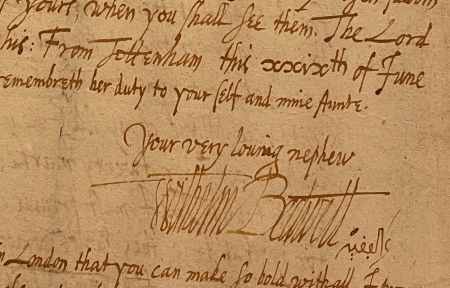 yours, when you shall see them. The Lord
his: From Tottenham this xxixth of June
remembreth her duty to your self and mine Aunte.
Your very loving nephew
Wilhelm Bedwell
London that you can make so bold withall